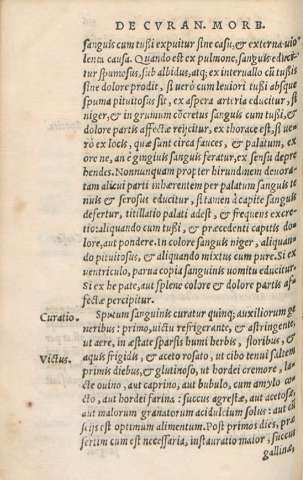 DE CVRAN. MORB.
sanguis cum tußi expuitur sine casu, & externa uio
lenta causa. Quando est ex pulmone, sanguis educi-
tur spumosus, sub albidus, atq; ex interuallo cũ tußis
sine dolore prodit, si uerò cum leuiori tußi absque
spuma pituitosus sit, ex aspera arteria educitur, si
niger, & in grumum cõcretus sanguis cum tußi, &
dolore partis affectæ reijcitur, ex thorace est, si ue-
rò ex locis, quæ sunt circa fauces, & palatum, ex
ore ne, an è gingiuis sanguis feratur, ex sensu depre
hendes. Nonnunquam propter hirundinem deuora-
tam alicui parti inhærentem per palatum sanguis te
nuis & serosus educitur, si tamen à capite sanguis
defertur, titillatio palati adest, & frequens excre-
tio: aliquando cum tußi, & præcedenti capitis do-
lore, aut pondere. In colore sanguis niger, aliquan-
do pituitosus, & aliquando mixtus cum pure. Si ex
uentriculo, parua copia sanguinis uomitu educitur.
Si ex hepate, aut splene colore & dolore partis af-
fectæ percipitur.
Curatio. Sputum sanguinis curatur quinq; auxiliorum ge
neribus: primo, uictu refrigerante, & astringente,
ut aere, in æstate sparsis humi herbis, floribus, &
Victus. aquis frigidis, & aceto rosato, ut cibo tenui saltem
primis diebus, & glutinoso, ut hordei cremore, la-
cte ouino, aut caprino, aut bubulo, cum amylo co-
cto, aut hordei farina: succus agrestæ, aut acetosæ,
aut malorum granatorum acidulcium solus: aut
sicys est optimum alimentum. Post primos dies, præ
sertim cum est necessaria, instauratio maior, succus
gallinæ,